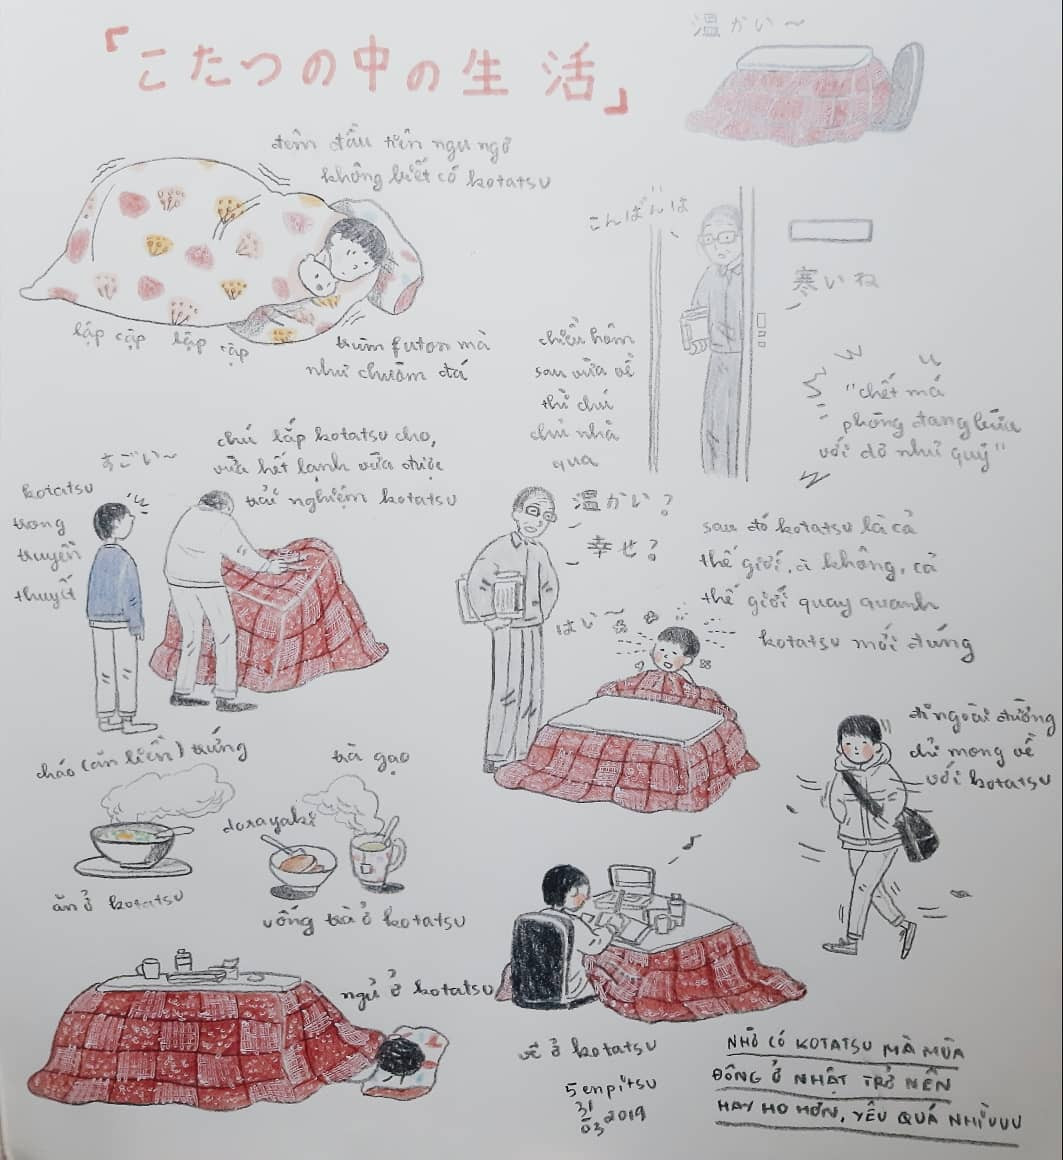 「こたつの中の生活」
温かい～
đêm đầu tiên ngu ngơ
không biết có kotatsu
lập cập lập cập
trùm futon mà
như chườm đá
こんばんは
寒いね
chiều hôm
sau vừa về
thì chú
chủ nhà
qua
"chết má
phòng đang bừa
với dơ như quỷ"
chú lắp kotatsu cho,
vừa hết lạnh vừa được
trải nghiệm kotatsu
すごい～
kotatsu
trong
truyền
thuyết
温かい?
幸せ?
はい～
sau đó kotatsu là cả
thế giới, à không, cả
thế giới quay quanh
kotatsu mới đúng
đi ngoài đường
chỉ mong về
với kotatsu
cháo (ăn liền) trứng
ăn ở kotatsu
trà gạo
dorayaki
uống trà ở kotatsu
ngủ ở kotatsu
vẽ ở kotatsu
5enpitsu
31
03 2019
NHỜ CÓ KOTATSU MÀ MÙA
ĐÔNG Ở NHẬT TRỞ NÊN
HAY HO HƠN, YÊU QUÁ NHIỀUUU